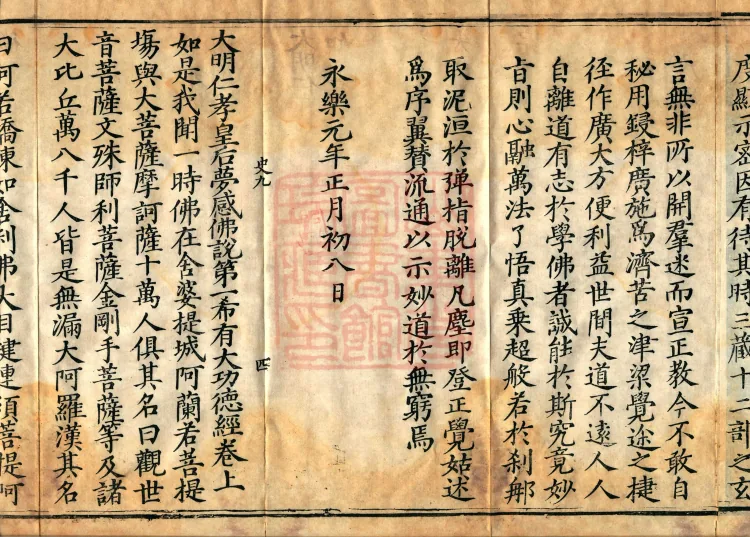 顯示密因有待其時三藏十二部之玄
言無非所以開羣迷而宣正教今不敢自
秘用鋟梓廣施爲濟苦之津梁覺途之捷
徑作廣大方便利益世間夫道不遠人人
自離道有志於學佛者誠能於斯究竟妙
旨則心融萬法了悟真乗超般若於剎那
取泥洹於彈指脫離凡塵即登正覺姑述
爲序翼賛流通以示妙道於無窮焉
永樂元年正月初八日
史九
四
大明仁孝皇后夢感佛說第一希有大功德經卷上
如是我聞一時佛在舍婆提城阿蘭若菩提
塲與大菩薩摩訶薩十萬人俱其名曰觀世
音菩薩文殊師利菩薩金剛手菩薩等及諸
大比丘萬八千人皆是無漏大阿羅漢其名
曰阿若憍陳如舍利佛大目揵連須菩提阿